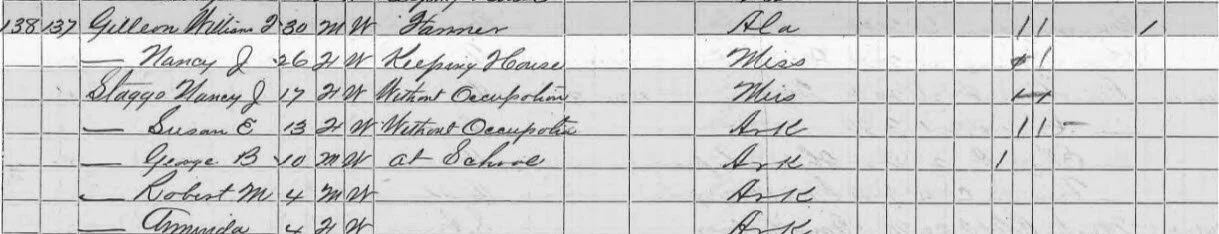 138 137 Gilleon William F 30 M W Farmer Ala 1 1 1
— Nancy J 26 F W Keeping House Miss 1 1
Staggs Nancy J 17 F W Without Occupation Miss 1 1
— Susan E 13 F W Without Occupatin Ark 1 1 –
— George B 10 M W at School Ark 1
— Robert M 4 M W Ark
— Aminda 4 F W Ark